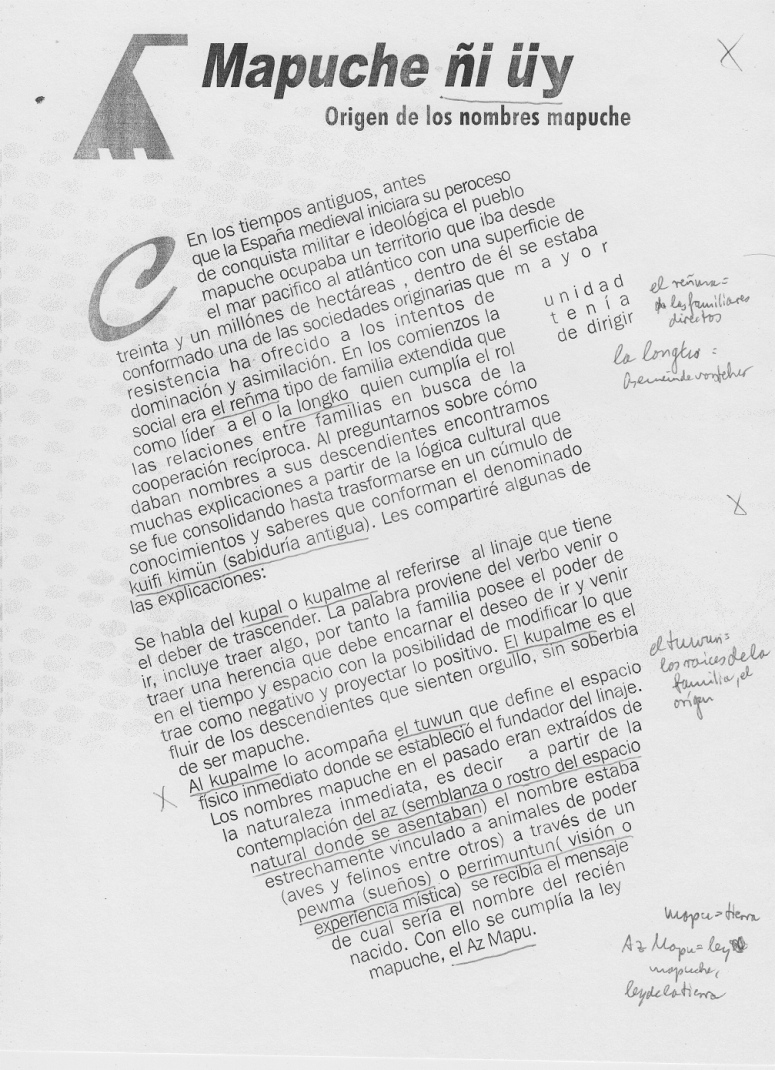 Mapuche ñi üy
Origen de los nombres mapuche
C
En los tiempos antiguos, antes
que la España medieval iniciara su peroceso
de conquista militar e ideológica el pueblo
mapuche ocupaba un territorio que iba desde
el mar pacifico al atlántico con una superficie de
treinta y un millónes de hectáreas , dentro de él se estaba
conformado una de las sociedades originarias que m a y o r
resistencia ha ofrecido a los intentos de
dominación y asimilación. En los comienzos la unidad
social era el reñma tipo de familia extendida que tenía
como líder a el o la longko quien cumplía el rol de dirigir
las relaciones entre familias en busca de la
cooperación recíproca. Al preguntarnos sobre cómo
daban nombres a sus descendientes encontramos
muchas explicaciones a partir de la lógica cultural que
se fue consolidando hasta trasformarse en un cúmulo de
conocimientos y saberes que conforman el denominado
kuifi kimün (sabiduría antigua). Les compartiré algunas de
las explicaciones:
Se habla del kupal o kupalme al referirse al linaje que tiene
el deber de trascender. La palabra proviene del verbo venir o
ir, incluye traer algo, por tanto la familia posee el poder de
traer una herencia que debe encarnar el deseo de ir y venir
en el tiempo y espacio con la posibilidad de modificar lo que
trae como negativo y proyectar lo positivo. El kupalme es el
fluir de los descendientes que sienten orgullo, sin soberbia
de ser mapuche.
Al kupalme lo acompaña el tuwun que define el espacio
físico inmediato donde se estableció el fundador del linaje.
Los nombres mapuche en el pasado eran extraídos de
la naturaleza inmediata, es decir a partir de la
contemplación del az (semblanza o rostro del espacio
natural donde se asentaban) el nombre estaba
estrechamente vinculado a animales de poder
(aves y felinos entre otros) a través de un
pewma (sueños) o perrimuntun( visión o
experiencia mística) se recibía el mensaje
de cual sería el nombre del recién
nacido. Con ello se cumplía la ley
mapuche, el Az Mapu.
el reñma =
los familiares
directos
la longko =
el tuwun =
los raíces de la
familia, el
origen
mapu = tierra
Az Mapu = ley
mapuche,
ley de la tierra